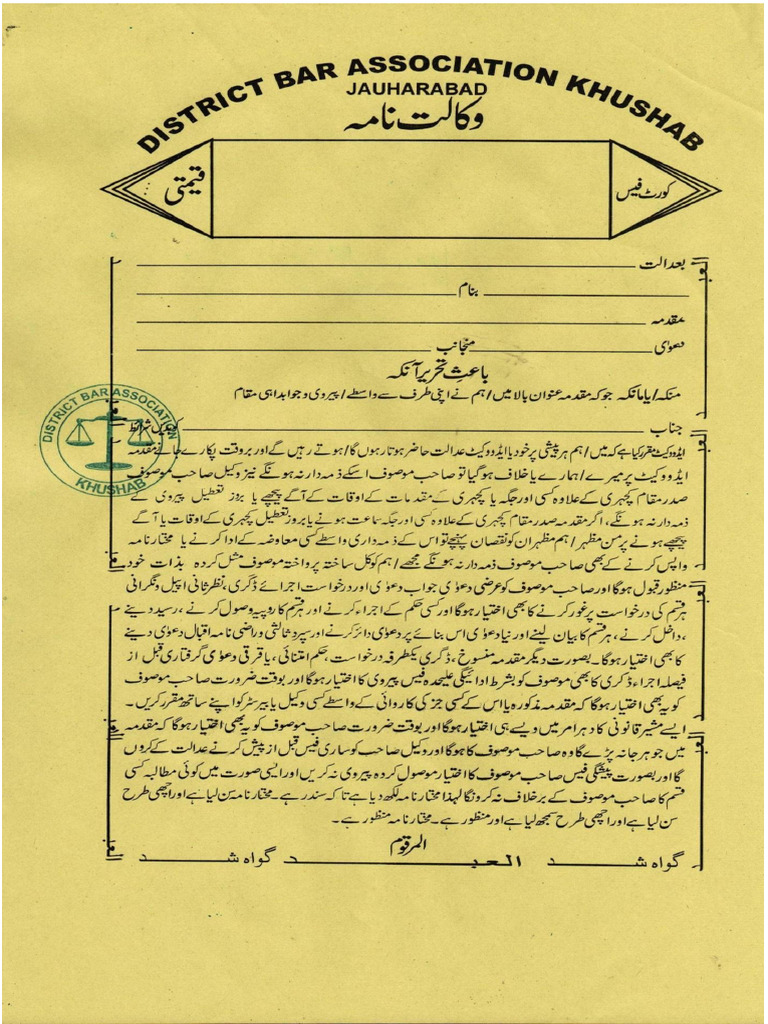 DISTRICT BAR ASSOCIATION KHUSHAB
JAUHARABAD
وکالت نامہ
کورٹ فیس
قیمتی
بعدالت
بنام
مقدمہ
دعویٰ منجانب
باعثِ تحریر آنکہ
منکہ/یامانکہ جو کہ مقدمہ عنوان بالا میں/ہم نے اپنی طرف سے واسطے/پیروی و جوابداہی مقام
جناب شرائط
DISTRICT BAR ASSOCIATION
KHUSHAB
ایڈووکیٹ مقرر کیا ہے کہ میں/ہم ہر پیشی پر خود یا ایڈووکیٹ عدالت حاضر ہوتا رہوں گا/ہوتے رہیں گے اور بروقت پکارے جانے مقدمہ
ایڈووکیٹ پر میرے/ہمارے یا خلاف ہو گیا تو صاحب موصوف اسکے ذمہ دار نہ ہونگے نیز وکیل صاحب موصوف
صدر مقام کچہری کے علاوہ کسی اور جگہ یا کچہری کے مقدمات کے اوقات کے آگے پیچھے یا بروز تعطیل پیروی کے
ذمہ دار نہ ہونگے، اگر مقدمہ صدر مقام کچہری کے علاوہ کسی اور جگہ سماعت ہونے یا بروز تعطیل کچہری کے اوقات یا آگے
پیچھے ہونے پر من مظہر/ہم مظہران کو نقصان پہنچے تو اس کے ذمہ داری واسطے کسی معاوضہ کے ادا کرنے یا مختارنامہ
واپس کرنے کے بھی صاحب موصوف ذمہ دار نہ ہونگے مجھے/ہم کو کل ساختہ پرواختہ موصوف مثل کردہ بذات خود
منظور قبول ہوگا اور صاحب موصوف کو عرضی دعوٰی جواب دعوٰی اور درخواست اجرائے ڈگری، نظرثانی اپیل ونگرانی
ہر قسم کی درخواست پر غور کرنے کا بھی اختیار ہوگا اور کسی حکم کے اجراء کرنے اور ہر قسم کا روپیہ وصول کرنے، رسید دینے
، داخل کرنے، ہر قسم کا بیان لینے اور نیا دعوٰی اس بنائے پر دعوٰی دائر کرنے اور سپرد ثالثی و راضی نامہ اقبال دعوٰی دینے
کا بھی اختیار ہوگا۔ بصورت دیگر مقدمہ منسوخ، ڈگری یکطرفہ درخواست، حکم امتنائی، یا قرقی دعوٰمی گرفتاری قبل از
فیصلہ اجراء ڈگری کا بھی موصوف کو بشرط ادائیگی علیحدہ فیس پیروی کا اختیار ہوگا اور بوقت ضرورت صاحب موصوف
کو یہ بھی اختیار ہوگا کہ مقدمہ مذکورہ یا اس کے کسی جز کی کاروائی کے واسطے کسی وکیل یا بیرسٹر کو اپنے ساتھ مقرر کریں۔
ایسے مشیر قانونی کا دہر امر میں ویسے ہی اختیار ہوگا اور بوقت ضرورت صاحب موصوف کو یہ بھی اختیار ہوگا کہ مقدمہ
میں جو ہرجانہ پڑے گا وہ صاحب موصوف کا ہوگا اور وکیل صاحب کو ساری فیس قبل از پیش کرنے عدالت کے کروں
گا اور بصورت پیشگی فیس صاحب موصوف کا اختیار موصول کردہ پیروی نہ کریں اور ایسی صورت میں کوئی مطالبہ کسی
قسم کا صاحب موصوف کے برخلاف نہ کرونگا لہذا مختارنامہ لکھ دیا ہے تاکہ سند رہے۔ مختارنامہ سن لیا ہے اور اچھی طرح
سن لیا ہے اور اچھی طرح سمجھ لیا ہے اور منظور ہے۔ مختارنامہ منظور ہے۔
المرقوم
گواہ شد العبد گواہ شد